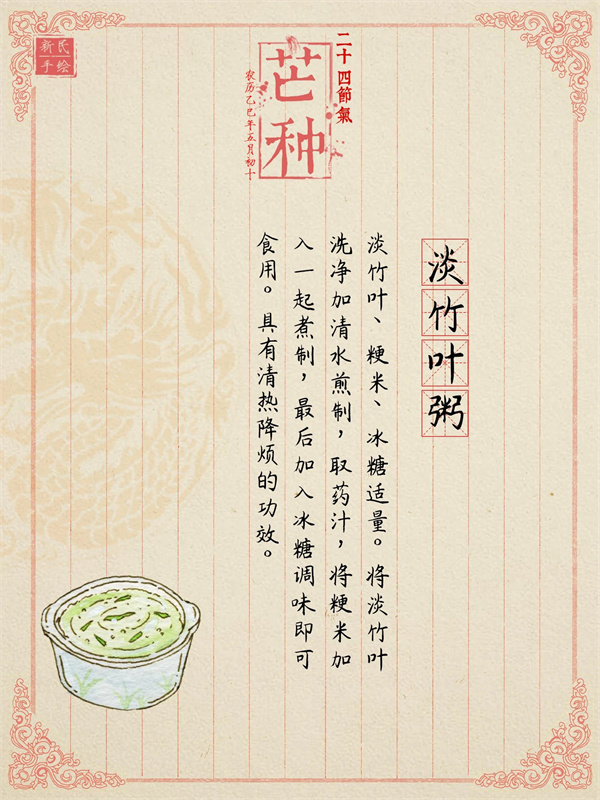 新民
手绘
二十四節氣
芒种
农历乙巳年五月初十
淡竹叶粥
淡竹叶、粳米、冰糖适量。将淡竹叶
洗净加清水煎制，取药汁，将粳米加
入一起煮制，最后加入冰糖调味即可
食用。具有清热降烦的功效。